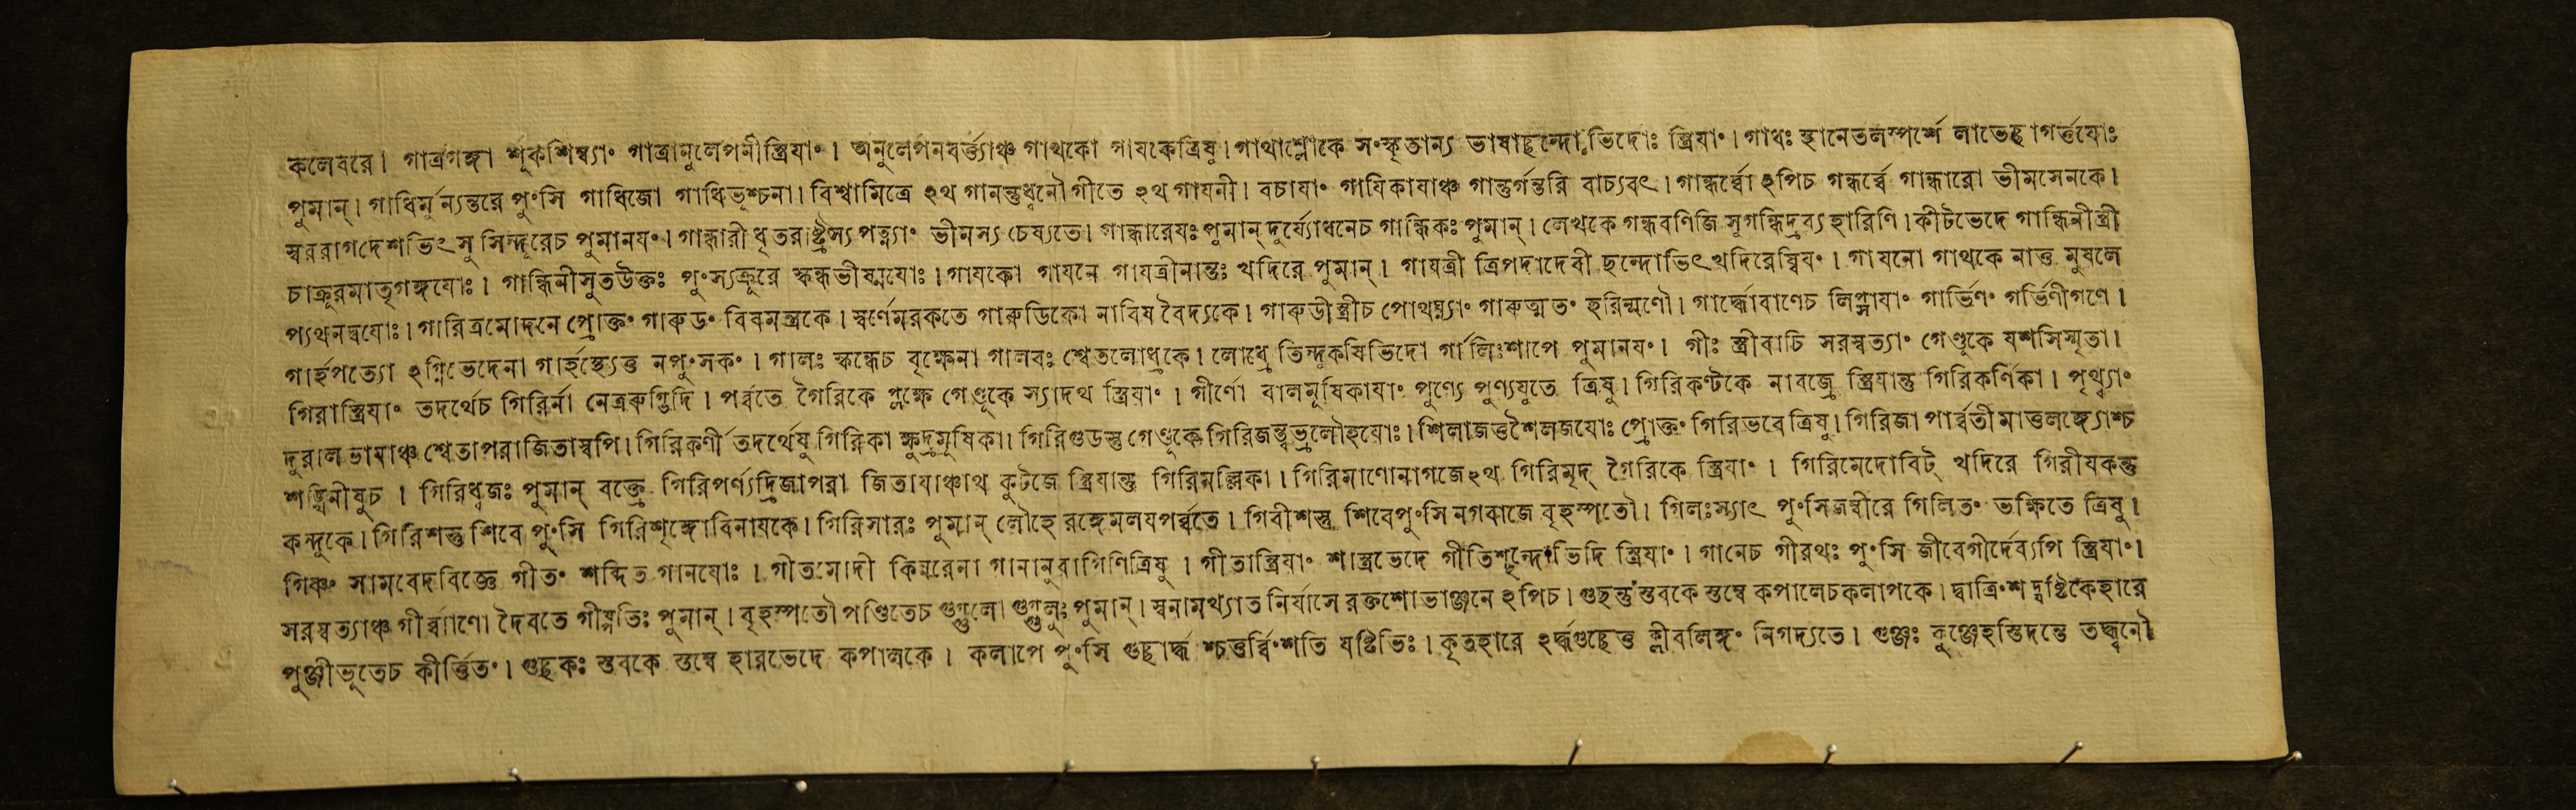 কলেবরে। গাত্রগঙ্গা শূকশিম্ব্যাং গাত্রানুলেপনীস্ত্রিযাং। অনুলেপনবর্ত্ত্যাঞ্চ গাথকো গাযকেত্রিষু। গাথাশ্লোকে সংস্কৃতান্য ভাষাছন্দোভিদোঃ স্ত্রিযাং। গাধঃ স্থানেতলস্পর্শে লাভেছাগর্ত্তযোঃ
পুমান্। গাধির্মুন্যন্তরে পুংসি গাধিজো গাধিভূশ্চনা। বিশ্বামিত্রে ঽথ গানন্তুধ্বনৌগীতে ঽথ গাযনী। বচাযাং গাযিকাযাঞ্চ গান্তুর্গন্তরি বাচ্যবৎ। গান্ধর্ব্বো ঽপিচ গন্ধর্ব্বে গান্ধারো ভীমসেনকে।
স্বররাগদেশভিৎসু সিন্দূরেচ পুমানযং। গান্ধারী ধৃতরাষ্ট্রস্য পত্ন্যাং ভীমস্য চেষ্যতে। গান্ধারেযঃ পুমান্ দুর্য্যোধনেচ গান্ধিকঃ পুমান্। লেখকে গন্ধবণিজি সুগন্ধিদ্রব্য হারিণি। কীটভেদে গান্ধিনীস্ত্রী
চাক্রূরমাতৃগঙ্গযোঃ। গান্ধিনীসুতউক্তঃ পুংস্যক্রূরে স্কন্ধভীষ্মযোঃ। গাযকো গাযনে গাযত্রীনান্তঃ খদিরে পুমান্। গাযত্রী ত্রিপদাদেবী ছন্দোভিৎখদিরেম্বিযং। গাযনো গাথকে নাত্ত মুষলে
প্যথনদ্বযোঃ। গারিত্রমোদনে প্রোক্তং গারুডং বিষমন্ত্রকে। স্বর্ণেমরকতে গারুডিকো নাবিষ বৈদ্যকে। গারুডীস্ত্রীচ পোথঘ্ন্যাং গারুত্মতং হরিন্মণৌ। গার্দ্ধোবাণেচ লিপ্সাযাং গার্ভিণং গর্ভিণীগণে।
গার্হপত্যো ঽগ্নিভেদেনা গার্হস্থ্যেত্ত নপুংসকং। গালঃ স্কন্ধেচ বৃক্ষেনা গালবঃ শ্বেতলোধ্রকে। লোধ্রে তিন্দূকষিভিদো র্গালিঃশাপে পুমানযং। গীঃ স্ত্রীবাচি সরস্বত্যাং গেণ্ডূকে যশসিস্মৃতা।
গিরাস্ত্রিযাং তদর্থেচ গিরির্না নেত্ররুগ্ভিদি। পর্ব্বতে গৈরিকে প্লক্ষে গেণ্ডূকে স্যাদথ স্ত্রিযাং। গীর্ণো বালমূষিকাযাং পুণ্যে পুণ্যযুতে ত্রিষু। গিরিকণ্টকে নাবজ্রে স্ত্রিযান্তু গিরিকর্ণিকা। পৃথ্ব্যাং
দুরালভাযাঞ্চ শ্বেতাপরাজিতাস্বপি। গিরিকর্ণী তদর্থেষু গিরিকা ক্ষুদ্রমূষিকা। গিরিগুডস্তু গেণ্ডূকে গিরিজন্ত্বভ্রলৌহযোঃ। শিলাজত্তশৈলজযোঃ প্রোক্তং গিরিভবেত্রিষু। গিরিজা পার্ব্বতীমাত্তলঙ্গ্যোশ্চ
শঙ্খিনীষুচ। গিরিধ্বজঃ পুমান্ বজ্রে গিরিপর্ণ্যদ্রিজাপরা জিতাযাঞ্চাথ কুটজে স্ত্রিযান্তু গিরিমল্লিকা। গিরিমাণোনাগজেঽথ গিরিমৃদ্ গৈরিকে স্ত্রিযাং। গিরিমেদোবিট্ খদিরে গিরীযকস্তু
কন্দূকে। গিরিশস্তু শিবে পুংসি গিরিশৃঙ্গোবিনাযকে। গিরিসারঃ পুমান্ লৌহে রঙ্গেমলযপর্ব্বতে। গিরীশস্তু শিবেপুংসি নগরাজে বৃহস্পতৌ। গিলঃস্যাৎ পুংসিজম্বীরে গিলিতং ভক্ষিতে ত্রিষু।
গিষ্ণং সামবেদবিজ্ঞে গীতং শব্দিত গানযোঃ। গীতমোদী কিন্নরেনা গানানুরাগিণিত্রিষু। গীতাস্ত্রিযাং শাস্ত্রভেদে গীতিশ্ছন্দোভিদি স্ত্রিযাং। গানেচ গীরথঃ পুংসি জীবেগীর্দেব্যপি স্ত্রিযাং।
সরস্বত্যাঞ্চ গীর্ব্বাণো দৈবতে গীষ্পতিঃ পুমান্। বৃহস্পতৌ পণ্ডিতেচ গুগ্গুলো গুগ্গুলুঃ পুমান্। স্বনামখ্যাত নির্যাসে রক্তশোভাঞ্জনে ঽপিচ। গুছন্তু স্তবকে স্তম্বে কপালেচকলাপকে। দ্বাত্রিংশদ্যষ্টিকেহারে
পুঞ্জীভূতেচ কীর্ত্তিতং। গুছকঃ স্তবকে স্তম্বে হারভেদে কপালকে। কলাপে পুংসি গুছার্দ্ধ শ্চত্তর্ব্বিংশতি যষ্টিভিঃ। কৃতহারে ঽর্দ্ধগুছেত্ত ক্লীবলিঙ্গং নিগদ্যতে। গুঞ্জঃ কুঞ্জেহস্তিদন্তে তদ্ধ্বনৌ